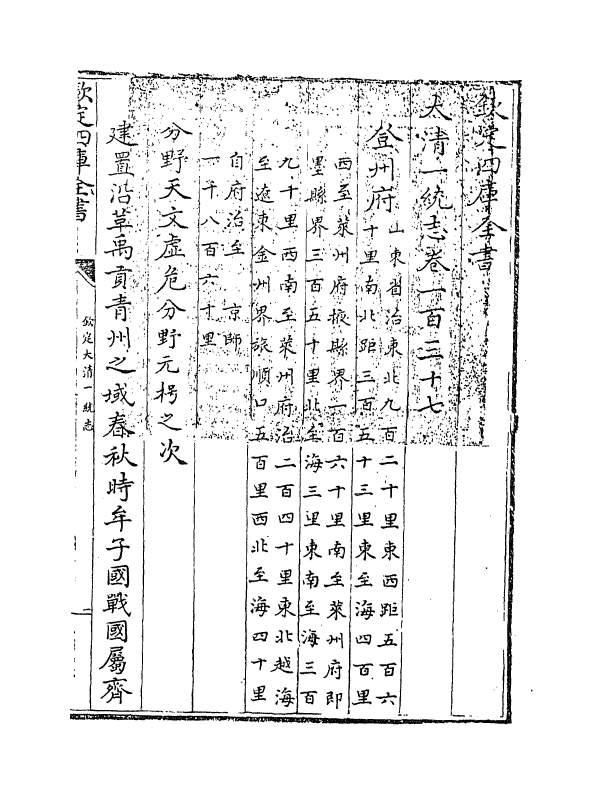 欽定四庫全書
大清一統志卷一百三十七
登州府 山東省治東北九百二十里東西距五百六
十里南北距三百五十三里東至海四百里
西至萊州府掖縣界一百六十里南至萊州府即
墨縣界三百五十里北至海三里東南至海三百
九十里西南至萊州府治二百四十里東北越海
至遼東金州界旅順口五百里西北至海四十里
自府治至 京師
一千八百六十里
分野天文虛危分野元枵之次
建置沿革禹貢青州之域春秋時牟子國戰國屬齊
欽定四庫全書
欽定大清一統志